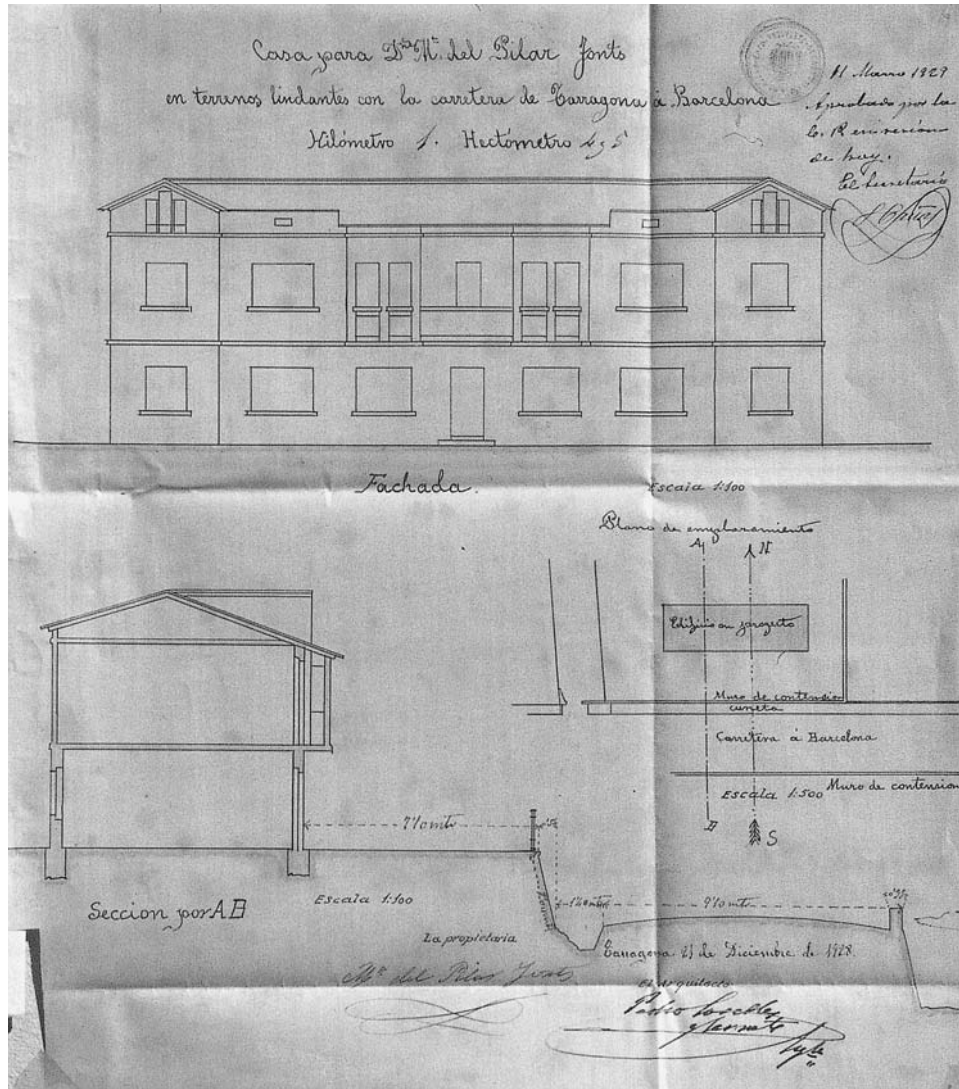 Casa para Dña Mª del Pilar Jonts
en terrenos lindantes con la carretera de Tarragona á Barcelona
Kilómetro 1. Hectómetro 4 y 5
11 Marzo 1929
Aprobado por la
C. P. en sesión
de hoy.
El Secretario
Fachada.
Escala 1:100
Plano de emplazamiento
A
N
Edificio en proyecto
Muro de contension
cuneta
Carretera á Barcelona
Escala 1:500
Muro de contension
B
S
Seccion por AB
Escala 1:100
La propietaria
Mª del Pilar Jonts
Tarragona 21 de Diciembre de 1928.
El Arquitecto
Pedro